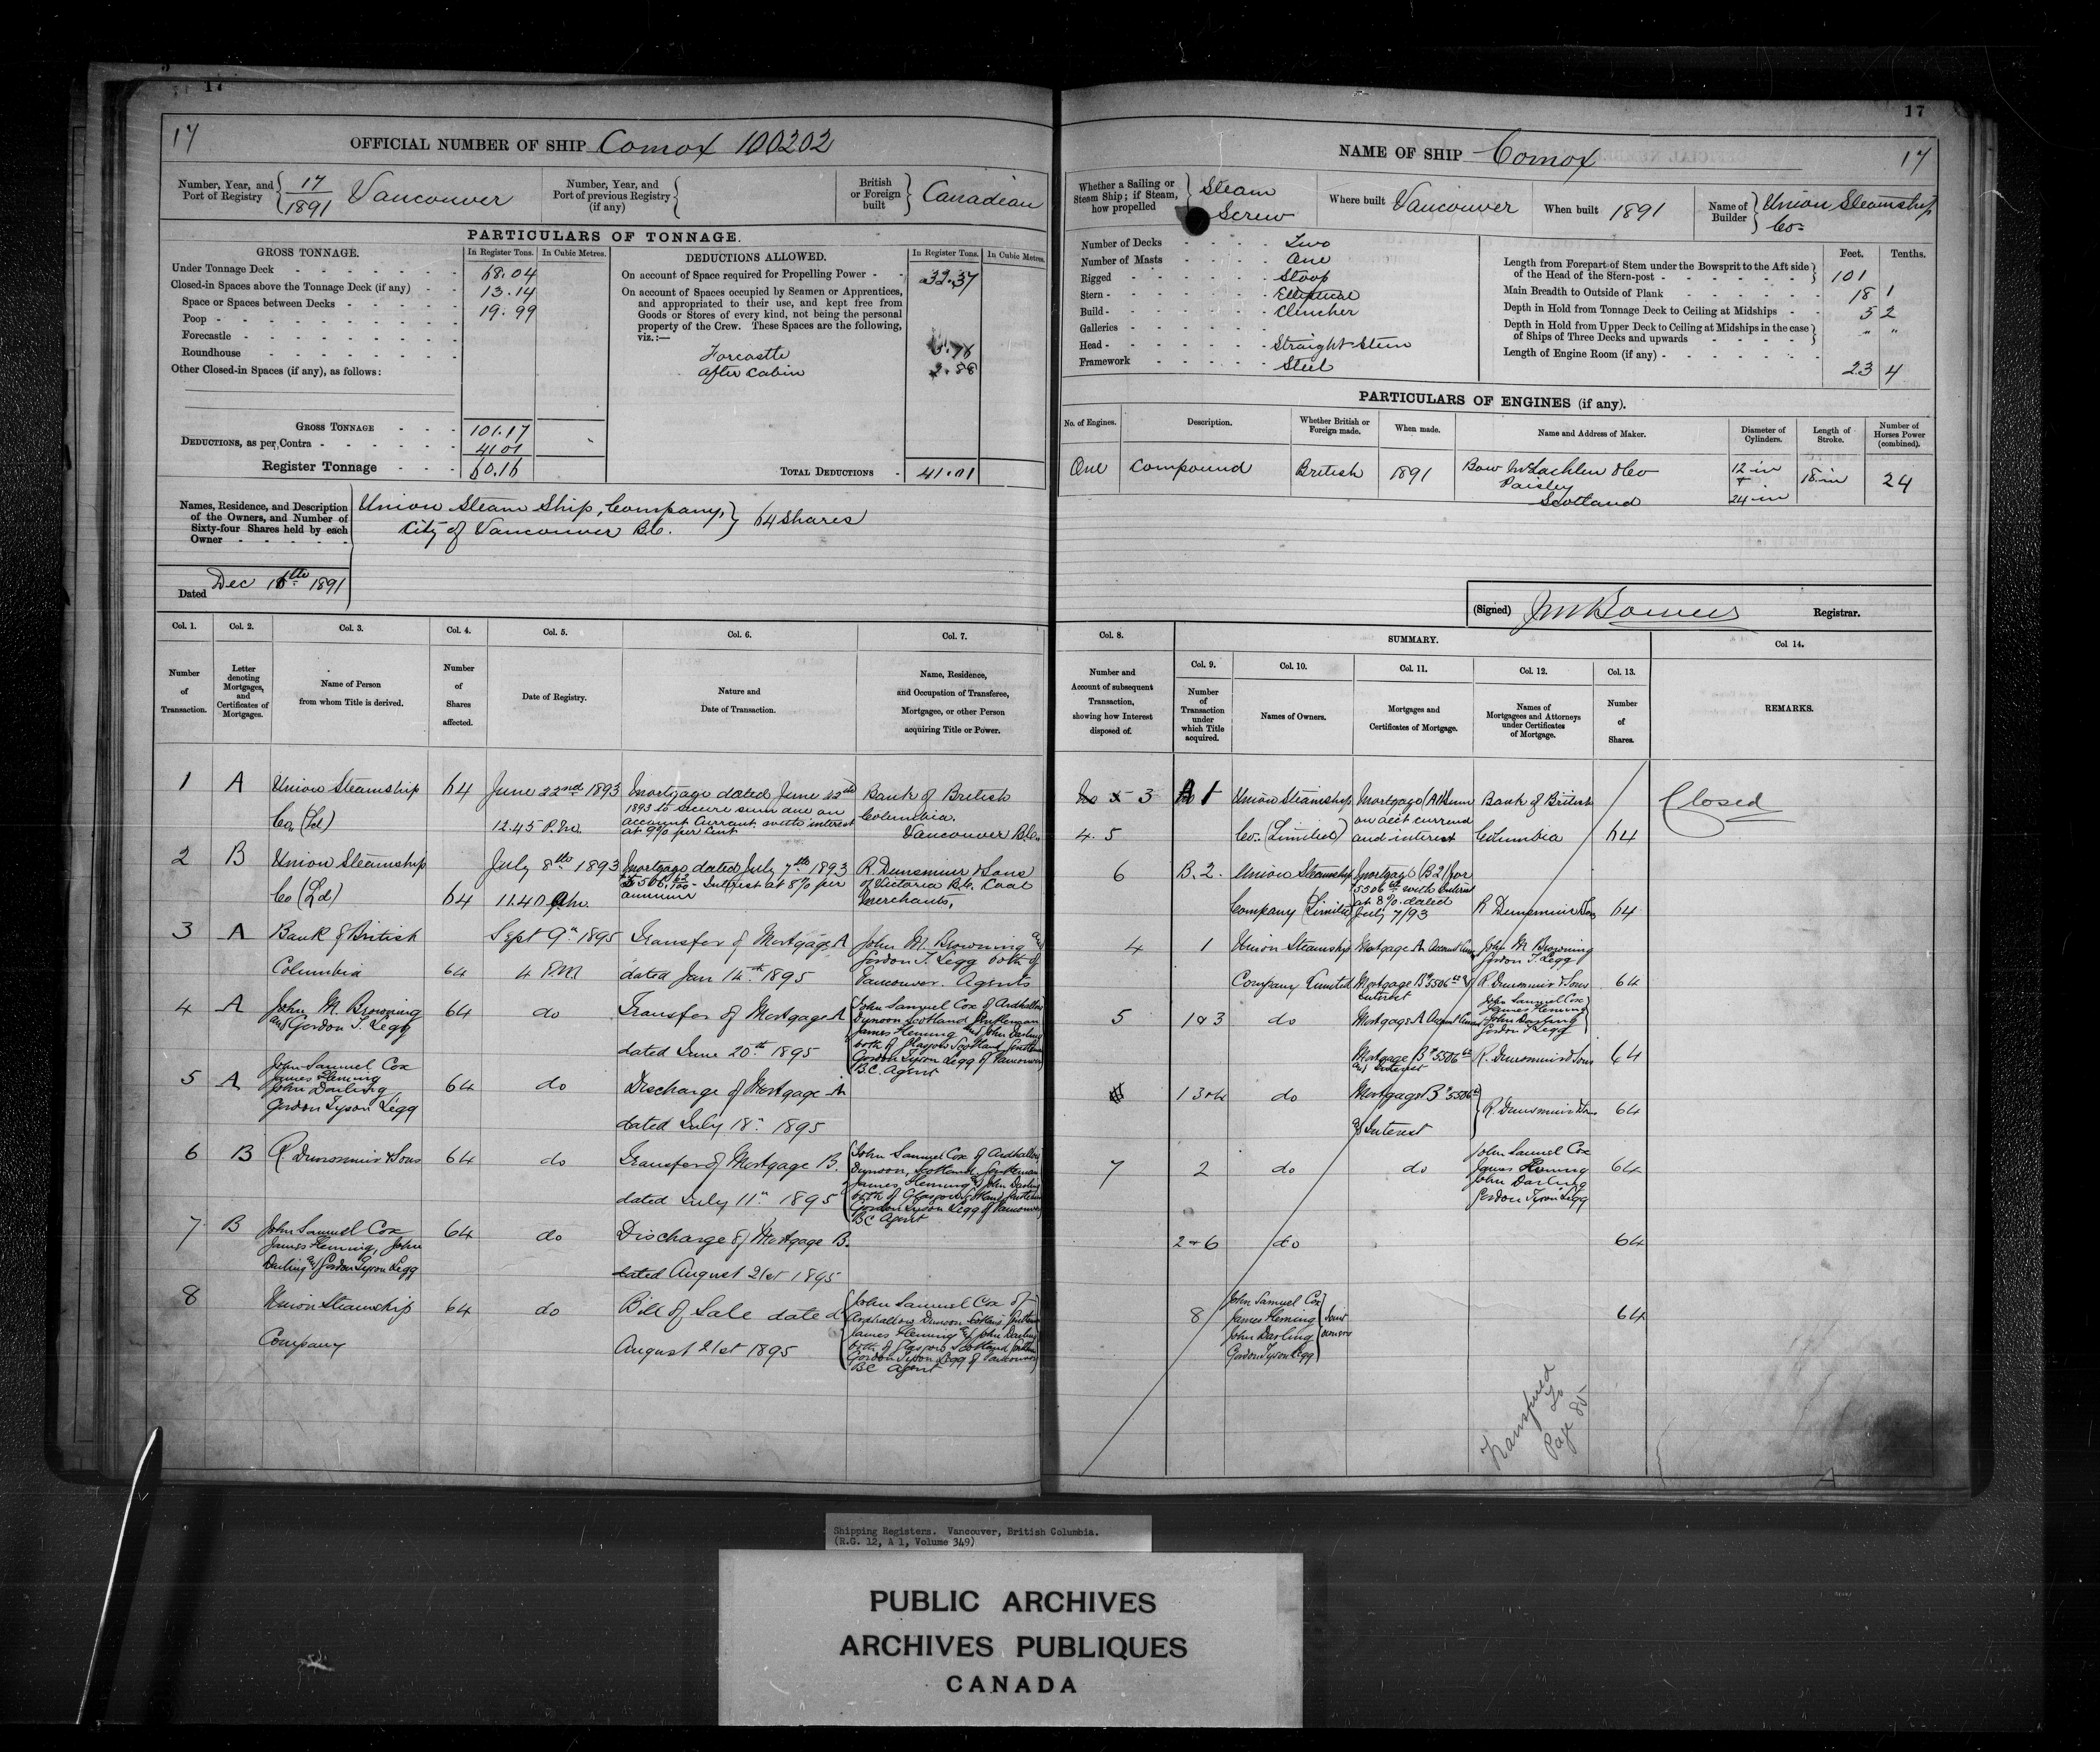 17
17
17
OFFICIAL NUMBER OF SHIP Comox 100202
Number, Year, and Port of Registry { 17/1891 Vancouver
Number, Year, and Port of previous Registry (if any) {
British or Foreign built } Canadian
PARTICULARS OF TONNAGE.
GROSS TONNAGE. In Register Tons. In Cubic Metres.
Under Tonnage Deck 68.04
Closed-in Spaces above the Tonnage Deck (if any) 13.14
Space or Spaces between Decks 19.99
Poop
Forecastle
Roundhouse
Other Closed-in Spaces (if any), as follows:
GROSS TONNAGE 101.17
DEDUCTIONS, as per Contra 41.01
Register Tonnage 60.16
DEDUCTIONS ALLOWED. In Register Tons. In Cubic Metres.
On account of Space required for Propelling Power 32.37
On account of Spaces occupied by Seamen or Apprentices,
and appropriated to their use, and kept free from
Goods or Stores of every kind, not being the personal
property of the Crew. These Spaces are the following,
viz.:—
Forcastle
after Cabin
TOTAL DEDUCTIONS 41.01
Names, Residence, and Description
of the Owners, and Number of
Sixty-four Shares held by each
Owner
Union Steam Ship, Company,
City of Vancouver B.C. } 64 Shares
Dated Dec 16th 1891
NAME OF SHIP Comox 17
Whether a Sailing or Steam Ship; if Steam, how propelled } Steam Screw
Where built Vancouver
When built 1891
Name of Builder } Union Steamship Co.
Number of Decks Two
Number of Masts One
Rigged Sloop
Stern Elliptical
Build Clincher
Galleries
Head Straight Stem
Framework Steel
Feet. Tenths.
Length from Forepart of Stem under the Bowsprit to the Aft side
of the Head of the Stern-post } 101
Main Breadth to Outside of Plank 18 1
Depth in Hold from Tonnage Deck to Ceiling at Midships 5 2
Depth in Hold from Upper Deck to Ceiling at Midships in the case
of Ships of Three Decks and upwards } " "
Length of Engine Room (if any) 23 4
PARTICULARS OF ENGINES (if any).
No. of Engines. Description. Whether British or Foreign made. When made. Name and Address of Maker. Diameter of Cylinders. Length of Stroke. Number of Horses Power (combined).
One Compound British 1891 Bow McLachlen & Co Paisley Scotland 12 in + 24 in 18 in 24
(Signed) Registrar.
Col. 1. Col. 2. Col. 3. Col. 4. Col. 5. Col. 6. Col. 7.
Number of Transaction.
Letter denoting Mortgages, and Certificates of Mortgages.
Name of Person from whom Title is derived.
Number of Shares affected.
Date of Registry.
Nature and Date of Transaction.
Name, Residence, and Occupation of Transferee, Mortgagee, or other Person acquiring Title or Power.
1 A Union Steamship Co. (Ld) 64 June 22nd 1893 12.45 P.m. Mortgage dated June 22nd 1893 to secure sum due on account Current with interest at 9% per cent Bank of British Columbia. Vancouver B.C.
2 B Union Steamship Co (Ld) 64 July 8th 1893 11.40 Am. Mortgage dated July 7th 1893 Interest at 8% per annum R. Dunsmuir & Sons of Victoria B.C. Coal Merchants,
3 A Bank of British Columbia 64 Sept 9th 1895 4 P.M. Transfer of Mortgage A dated Jan 14th 1895 John M. Browning and Gordon T. Legg both of Vancouver. Agents
4 A John M. Browning and Gordon T. Legg 64 do Transfer of Mortgage A dated June 20th 1895 John Samuel Cox of Ardhallow Dunoon Scotland Gentleman James Fleming and John Darling both of Glasgow Scotland Gentlemen Gordon Tyson Legg of Vancouver B.C. Agent
5 A John Samuel Cox James Fleming John Darling Gordon Tyson Legg 64 do Discharge of Mortgage A dated July 18th 1895
6 B R. Dunsmuir & Sons 64 do Transfer of Mortgage B. dated July 11th 1895 John Samuel Cox of Ardhallow Dunoon, Scotland, Gentleman James Fleming and John Darling both of Glasgow Scotland Gentlemen Gordon Tyson Legg of Vancouver BC Agent
7 B John Samuel Cox James Fleming, John Darling and Gordon Tyson Legg 64 do Discharge of Mortgage B. dated August 21st 1895
8 Union Steamship Company 64 do Bill of Sale dated August 21st 1895 John Samuel Cox of Ardhallow Dunoon Scotland Gentleman James Fleming and John Darling both of Glasgow Scotland Gentlemen Gordon Tyson Legg of Vancouver BC Agent
Col. 8. SUMMARY. Col. 14.
Col. 9. Col. 10. Col. 11. Col. 12. Col. 13.
Number and Account of subsequent Transaction, showing how Interest disposed of.
Number of Transaction under which Title acquired.
Names of Owners.
Mortgages and Certificates of Mortgage.
Names of Mortgagees and Attorneys under Certificates of Mortgage.
Number of Shares.
REMARKS.
3 4. 5 1 Union Steamship Co. (Limited) Mortgage on acct current and interest Bank of British Columbia 64 Closed
6 B. 2. Union Steamship Company (Limited) Mortgage (B2) for 5506 with interest at 8% dated July 7/93 R Dunsmuir & Sons 64
4 1 Union Steamship Company Limited Mortgage A John M Browning Gordon T. Legg Mortgage B $5506 Interest R. Dunsmuir & Sons 64
5 1 & 3 do Mortgage A John Samuel Cox James Fleming John Darling Gordon T Legg Mortgage B $5506 and Interest R. Dunsmuir & Sons 64
1 3 & 4 do Mortgage B $5506 & Interest R. Dunsmuir & Sons 64
7 2 do do John Samuel Cox James Fleming John Darling Gordon Tyson Legg 64
2 & 6 do 64
8 John Samuel Cox James Fleming John Darling Gordon Tyson Legg } Joint owners 64
Transferred
To
Page 85
Shipping Registers. Vancouver, British Columbia.
(R.G. 12, A 1, Volume 349)
PUBLIC ARCHIVES
ARCHIVES PUBLIQUES
CANADA